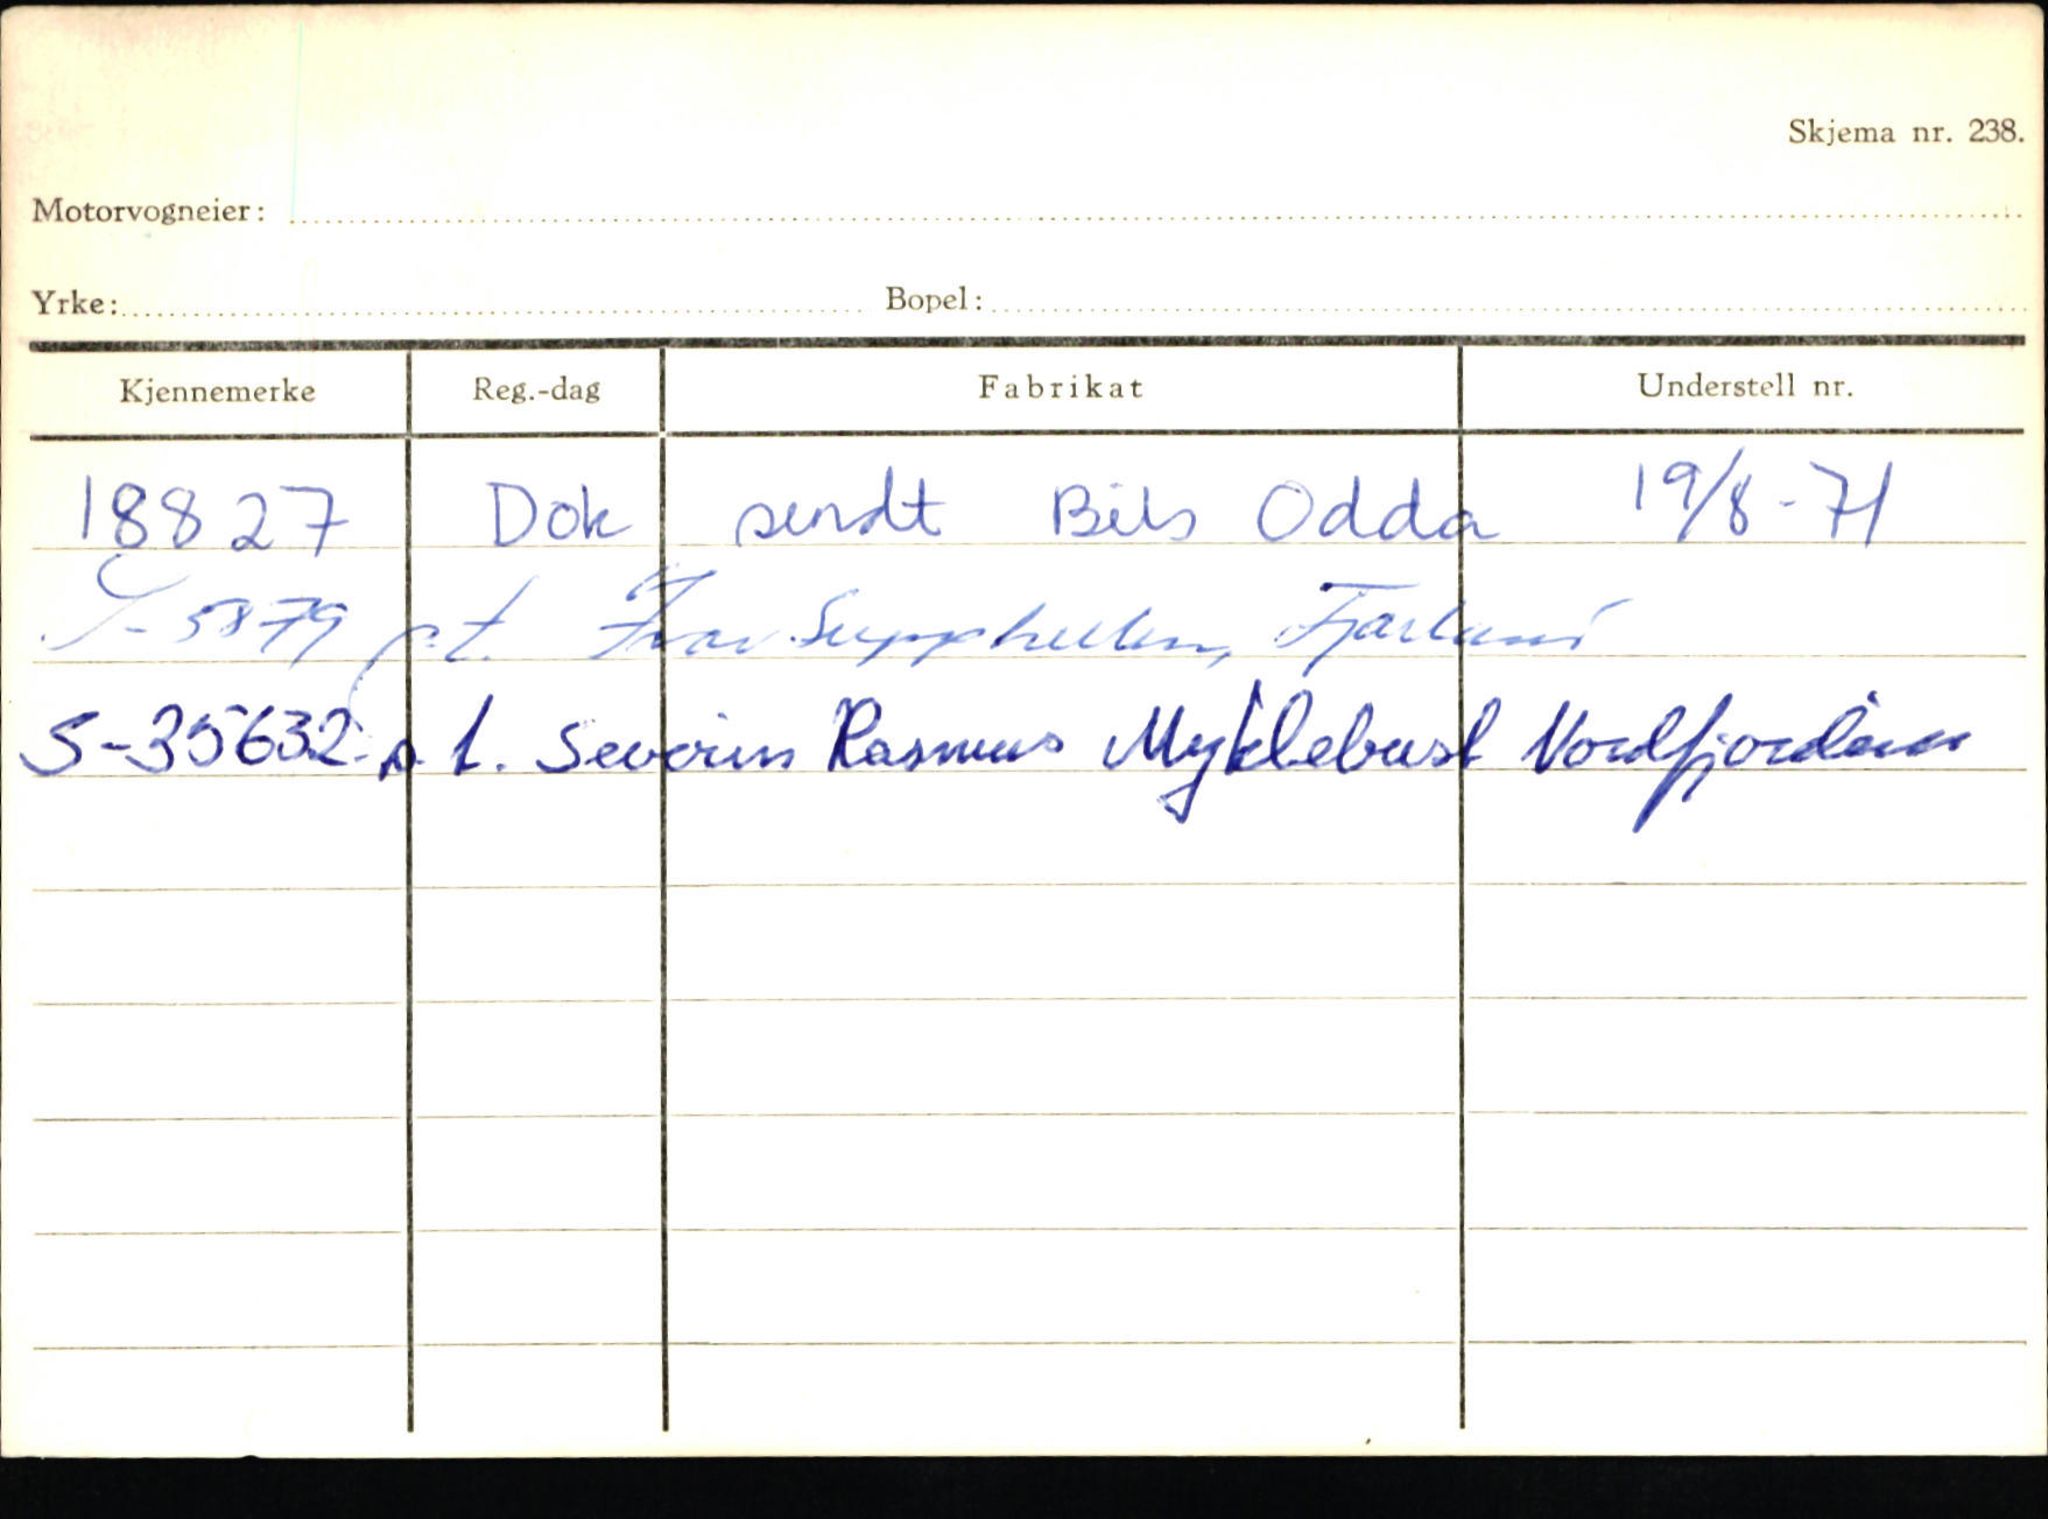 Skjema nr. 238.
Motorvogneier:
Yrke: Bopel:
Kjennemerke Reg.-dag Fabrikat Understell nr.
18827 Dok sendt Bils Odda 19/8-71
S-5879 p.t. Ivar Supphellen, Fjærland
S-35632 p.t. Severin Rasmus Myklebust Nordfjordeid